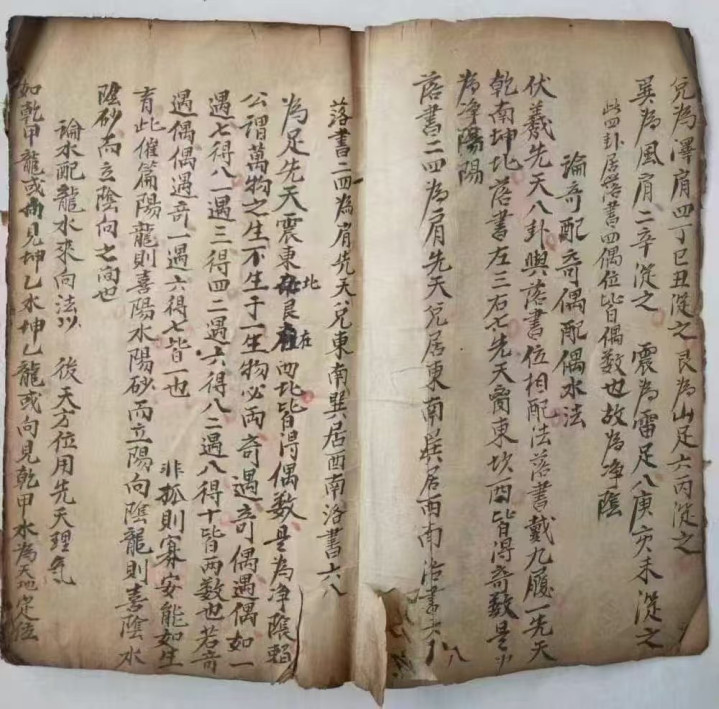 兌為澤肩四丁巳丑漎之艮為山足六丙漎之
巽為風肩二辛漎之 震為雷足八庚亥未漎之
此四卦居落書四偶位皆偶数也故為净陰
論奇配奇偶配偶水法
伏羲先天八卦與落書位相配法落書戴九履一先天
乾南坤北落書左三右七先天离東坎西皆淂奇数是以
為净陽陽
落書二四為肩先天兌居東南巽居西南洛書六八
落書二四為肩先天兌東南巽居西南洛書六八
為足先天震東北艮在西北皆淂偶数是為净陰賴
公謂萬物之生不生于一生物必两奇遇奇偶遇偶如一
遇七得八一遇三得四二遇六得八二遇八得十皆两数也若奇
遇偶偶遇奇一遇六得七皆一也 非孤則寡安能如生
育此催篇陽龍則喜陽水陽砂而立陽向陰龍則喜陰水
陰砂而立陰向之向也
論水配龍水來向法以 後天方位用先天理氣
如乾甲龍或向見坤乙水坤乙龍或向見乾甲水為天地定位